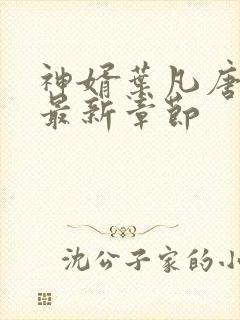 神婿葉凡唐
最新章節
沈公子家的小